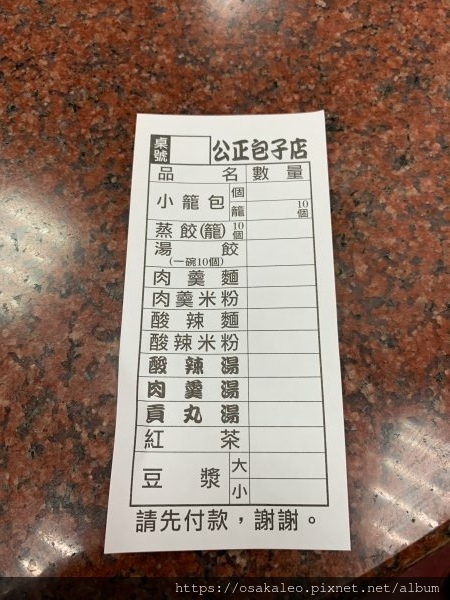 桌號 公正包子店
品名 數量
小籠包 個
籠 10個
蒸餃(籠) 10個
湯餃
(一碗10個)
肉羹麵
肉羹米粉
酸辣麵
酸辣米粉
酸辣湯
肉羹湯
貢丸湯
紅茶
豆漿 大
小
請先付款，謝謝。
https://osakaleo.pixnet.net/album